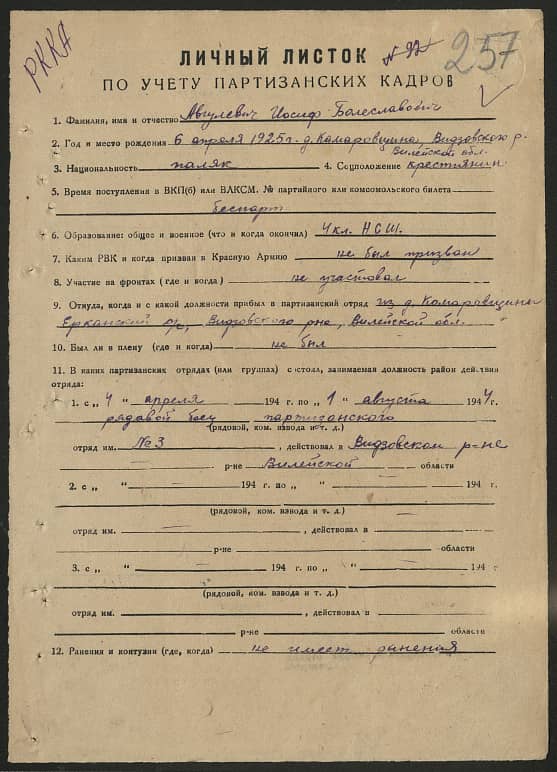 РККА
257
ЛИЧНЫЙ ЛИСТОК
ПО УЧЕТУ ПАРТИЗАНСКИХ КАДРОВ
1. Фамилия, имя и отчество Авгулевич Иосиф Болеславович
2. Год и место рождения 6 апреля 1925 г. д. Комаровщина, Видзовского р.
Вилейской обл.
3. Национальность паляк 4. Соцположение крестиянин
5. Время поступления в ВКП(б) или ВЛКСМ. № партийного или комсомольского билета
беспарт.
6. Образование: общее и военное (что и когда окончил) 4 кл. НСШ.
7. Каким РВК и когда призван в Красную Армию не был призван
8. Участие на фронтах (где и когда) не участвовал
9. Откуда, когда и с какой должности прибыл в партизанский отряд из д. Комаровщины
с/с, Видзовского рна, Вилейской обл.
10. Был ли в плену (где и когда) не был
11. В каких партизанских отрядах (или группах) состоял, занимаемая должность район действия
отряда:
1. с „4 " апреля 194 г. по „1 " августа 1944 г.
рядавой боец партизанского
(рядовой, ком. взвода и т. д.)
отряд им. №3, действовал в Видзовском р-не
р-не Вилейской области
2. с „ " 194 г. по „ " 194 г.
(рядовой, ком. взвода и т. д.)
отряд им. , действовал в
р-не области
3. с „ " 194 г. по „ " 194 г
(рядовой, ком. взвода и т. д.)
отряд им. , действовал в
р-не области
12. Ранения и контузии (где, когда) не имеет ранения